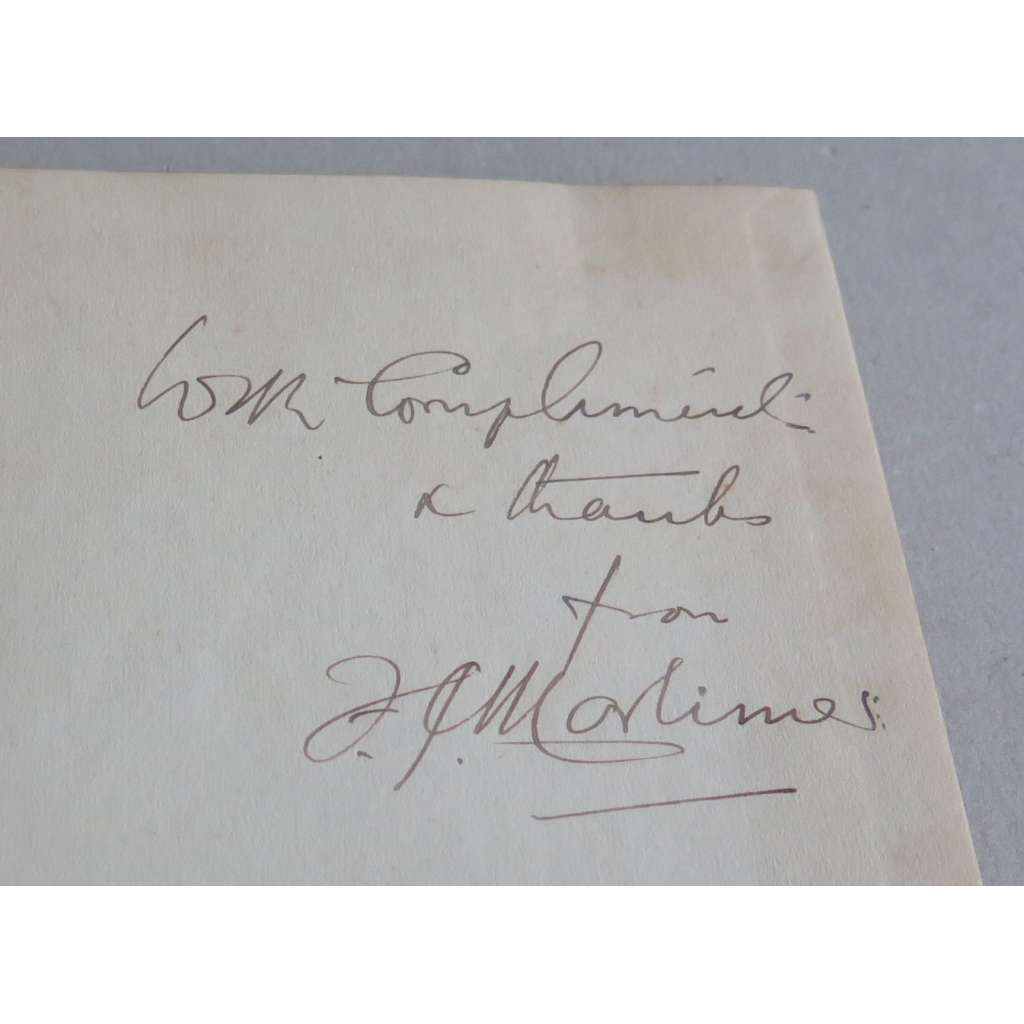 With Compliments
& thanks
from
F. J. Mortimer